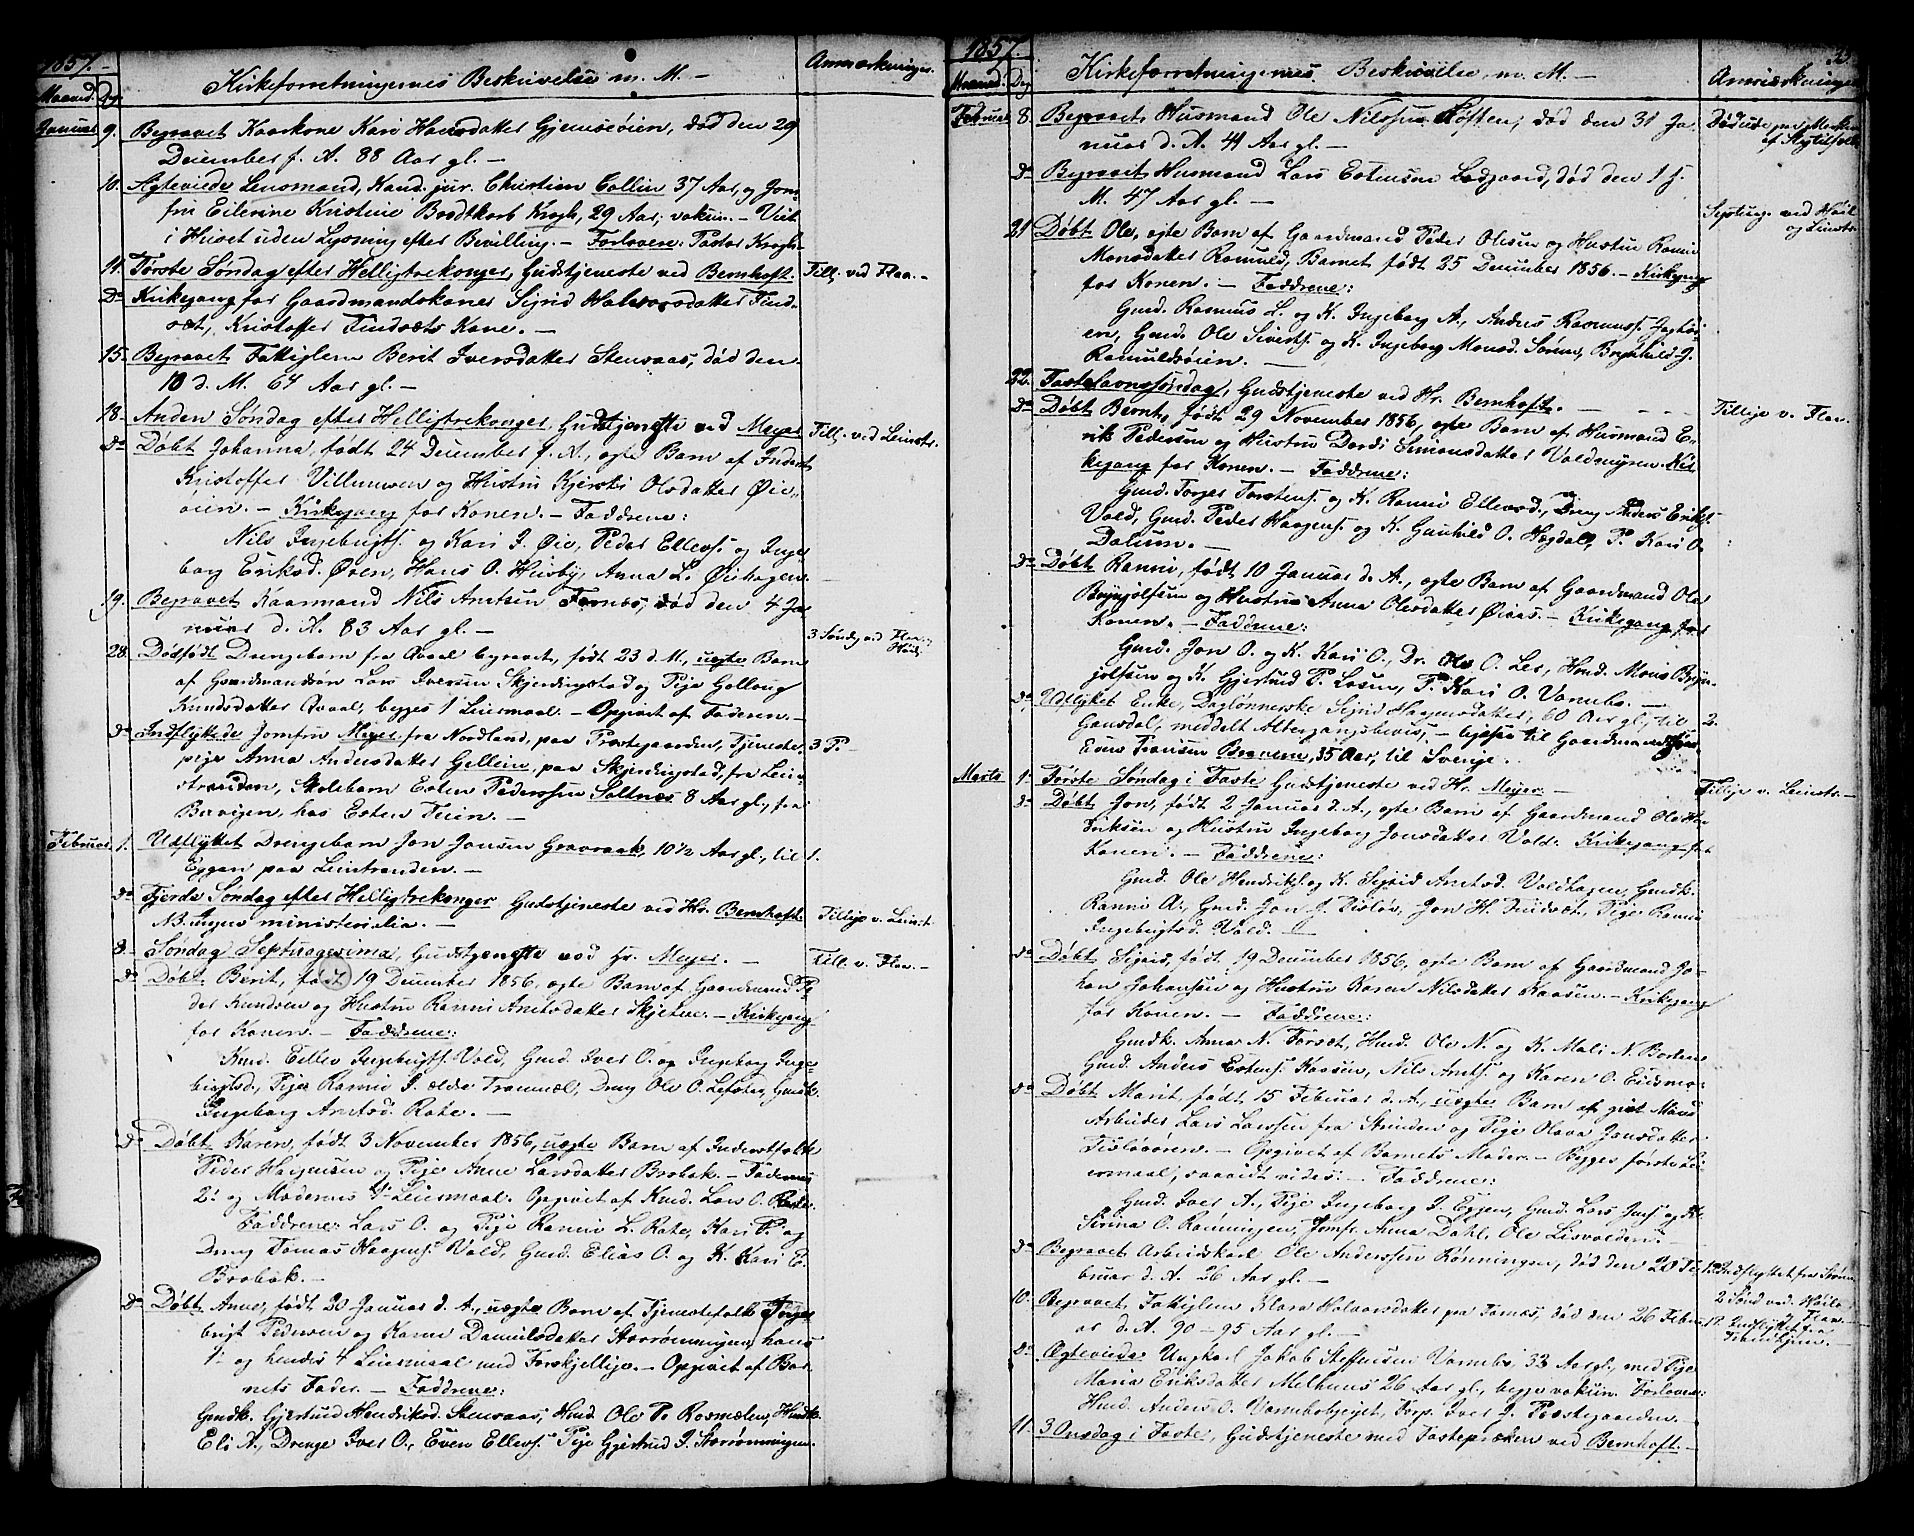 1857.
Maaned. Dag.
Kirkeforretningernes Beskrivelse m. M. —
Anmærkninger.
Januar 9. Begravet Kaarkone Kari Hansdatter Gjemseøien, død den 29
December f. A. 88 Aar gl. —
10. Ægteviede Lensmand, Kand. jur. Christian Collin 37 Aar, og Jom-
fru Eilerine Kristine Bordtkorb Krogh, 29 Aar, vakcin. — Viet
i Huset uden Lysning efter Bevilling. — Forlovere: Pastor Krogh
11. Første Søndag efter Helligtrekonger, Gudstjeneste ved Bernhoft. Till. ved Flaa. —
Do Kirkegang for Gaardmandskone Sigrid Halvorsdatter Find-
sæt, Kristoffer Findsæts Kone. —
15. Begravet Fattiglem Berit Iversdatter Stensaas, død den
10 d. M. 64 Aar gl. —
18. Anden Søndag efter Helligtrekonger, Gudstjeneste ved Meyer Till. ved Leinstr.
Do Døbt Johanna, født 24 December f. A., ægte Barn af Inderst
Kristoffer Villumsen og Hustru Kjersti Olsdatter Øie-
øien. — Kirkegang for Konen. — Faddrene:
Nils Ingebrigts. og Kari J. Øie, Peder Ellevs. og Inge-
borg Eriksd. Øien, Hans O. Husby, Anna L. Øiehagen
19. Begravet Kaarmand Nils Arntsen Fornes, død den 4 Ja-
nuar d. A. 83 Aar gl. —
3 Søndg ved Flaa
28. Dødfødt Drengebarn fra Qvaal begravet, født 23 d. M., uægte Barn
af Gaardmandssøn Lars Iversen Skjerdingstad og Pige Gollaug
Knudsdatter Qvaal, begges 1 Leiermaal. — Opgivet af Faderen. —
Do Indflyttede Jomfru Meyer fra Nordland, paa Prestegaarden, Tjeneste- 3 P. —
pige Anna Andersdatter Gellein, paa Skjerdingstad, fra Lein-
stranden, Skolebarn Esten Pederssen Saltnes 8 Aar gl., fra
Børvigen, hos Esten Teien. —
Februar 1. Udflyttet Drengebarn Jon Jonsen Gravraak, 10 1/2 Aar gl., til 1.
Eggen paa Leinstranden. —
Do Fjerde Søndag efter Helligtrekonger Gudstjeneste ved Hr. Bernhoft Tillige v. Leinst.
NB. ingen ministerialia. —
8. Søndag Septuagesima, Gudstjeneste ved Hr. Meyer. — Till. v. Flaa. —
Do Døbt Berit, født 19 December 1856, ægte Barn af Gaardmand Pe-
der Knudsen og Hustru Ranni Arntsdatter Skjetne. — Kirkegang
for Konen. — Faddrene:
Kmd. Ellev Ingebrigts. Vold, Gmd. Iver O. og Ingeborg Inge-
brigtsd., Pige Ranni J. ældre Trammel, Dreng Ole O. Lefster, Gmdk.
Ingeborg Arntsd. Rate. —
Do Døbt Karen, født 3 November 1856, uægte Barn af Inderstfolk
Peder Haagensen og Pige Anne Larsdatter Brobak. — Faderens
2. og Moderens 1. Leiermaal. Opgivet af Kmd. Lars O. Rate.
Faddrene: Lars O. og Pige Ranni L. Rate, Kari P. og
Dreng Tomas Haagens. Vold, Gmd. Elias O. og K. Kari E.
Brobak. —
Do Døbt Anne, født 20 Januar d. A., uægte Barn af Tjenestefolk Inge-
brigt Pedersen og Karen Danielsdatter Storrønningen, hans
1. og hendes 4 Leiermaal med Forskjellige. — Opgivet af Bar-
nets Fader. — Faddrene:
Gmdk. Gjertrud Henriksd. Stensaas, Hmd. Ole P. Rosmælen, Hmdk.
Eli A., Drenge Iver O., Even Ellevs. Pige Gjertrud J. Storrønningen.
1857.
Maaned. Dag
Kirkeforretningernes Beskrivelse m. M. —
Anmærkninger
Februar 8. Begravet Husmand Ole Nilssen Loften, død den 31 Ja-
nuar d. A. 41 Aar gl. —
Do Begravet Husmand Lars Estensen Ladgaard, død den 1 f.
M. 47 Aar gl. —
Septuag. ved Høil.
og Leinstr.
21 Døbt Ole, ægte Barn af Gaardmand Peder Olesen og Hustru Ranni
Monsdatter Romuld, Barnet født 25 December 1856. — Kirkegang
for Konen. — Faddrene:
Gmd. Rasmus L. og K. Ingeborg A., Anders Rasmuss. Jaghøi-
en, Gmd. Ole Siverts. og K. Ingeborg Monsd. Sørum, Brynhild J.
Romuldsøien. —
22. Fastelavnssøndag, Gudstjeneste ved Hr. Bernhoft. — Tillige v. Flaa.
Do Døbt Bernt, født 29 November 1856, ægte Barn af Husmand E-
rik Pedersen og Hustru Dordi Simonsdatter Voldmyren. Kir-
kegang for Konen. — Faddrene:
Gmd. Torger Torstens. og K. Ranni Ellevsd., Dreng Anders Eriks.
Vold, Gmd. Peder Haagens. og K. Gunhild O. Hogdal, P. Kari O.
Dalum. —
Do Døbt Ranni, født 10 Januar d. A., ægte Barn af Gaardmand Ole
Brynjolfsen og Hustru Anna Olesdatter Øiaas. — Kirkegang for
Konen. — Faddrene:
Gmd. Jon O. og K. Kari O., Dr. Ole O. Ler, Hmd. Mons Bryn-
jolfsen og K. Gjertrud P. Losen, P. Kari O. Vammbo. —
Do Udflyttet Enke, Daglønnerske Sigrid Haagensdatter, 60 Aar gl., til 2.
Gausdal, meddelt Altergangsbevis;
Even Fransen Brænne, 35 Aar, til Sverige.
Marts 1. Første Søndag i Faste Gudstjeneste ved Hr. Meyer. — Tillige v. Leinstr. —
Do Døbt Jon, født 2 Januar d. A., ægte Barn af Gaardmand Ole Hen-
driksen og Hustru Ingeborg Jonsdatter Vold. Kirkegang for
Konen. — Faddrene:
Gmd. Ole Hendriks. og K. Sigrid Arntsd. Voldhagen, Gmdk.
Ranni A., Gmd. Jon J. Tisløv, Jon H. Findsæt, Pige Ranni
Ingebrigtsd. Vold. —
Do Døbt Sigrid, født 19 December 1856, ægte Barn af Gaardmand Jo-
han Johansen og Hustru Karen Nilsdatter Kaasen. — Kirkegang
for Konen. — Faddrene:
Gmdk. Anna N. Forsæt, Hmd. Ole N. og K. Mali N. Borten
Gmd. Anders Estens. Kaasen, Nils Arnts. og Karen O. Eidsmo.
Do Døbt Marit, født 15 Februar d. A., uægte Barn af gift Mand
Arbeider Lars Larssen fra Strinden og Pige Olava Jonsdatter
Tisløvøren. — Opgivet af Barnets Moder. — Begges første Lei-
ermaal, saavidt vides. — Faddrene:
Gmd. Iver A., Pige Ingeborg I. Eggen, Gmd. Lars Jons. og K.
Sirina O. Rønningen, Jomfr. Anna Dahl, Ole Lisvolden. —
Do Begravet Arbeidskarl Ole Anderssen Rønningen, død den 20 Fe-
bruar d. A. 26 Aar gl. —
12 Indflyttet fra Støren
2 Sønd. ved Høil.
v. Flaa —
10. Begravet Fattiglem Klara Halvorsdatter paa Fornæs, død den 26 Febru-
ar d. A. 90–95 Aar gl. —
12 Indflyttet fra
Trondhjem. —
Do Ægteviede Ungkarl Jakob Steffensen Vammbo, 32 Aar gl., med Pige
Maria Eriksdatter Melhuus 26 Aar gl., begge vakcin. Forlovere:
Hmd. Anders O. Vambobjerget, Forp. Iver J. Præstegaarden. —
11. 3 Onsdag i Faste, Gudstjeneste med Fasteprædiken ved Bernhoft. —